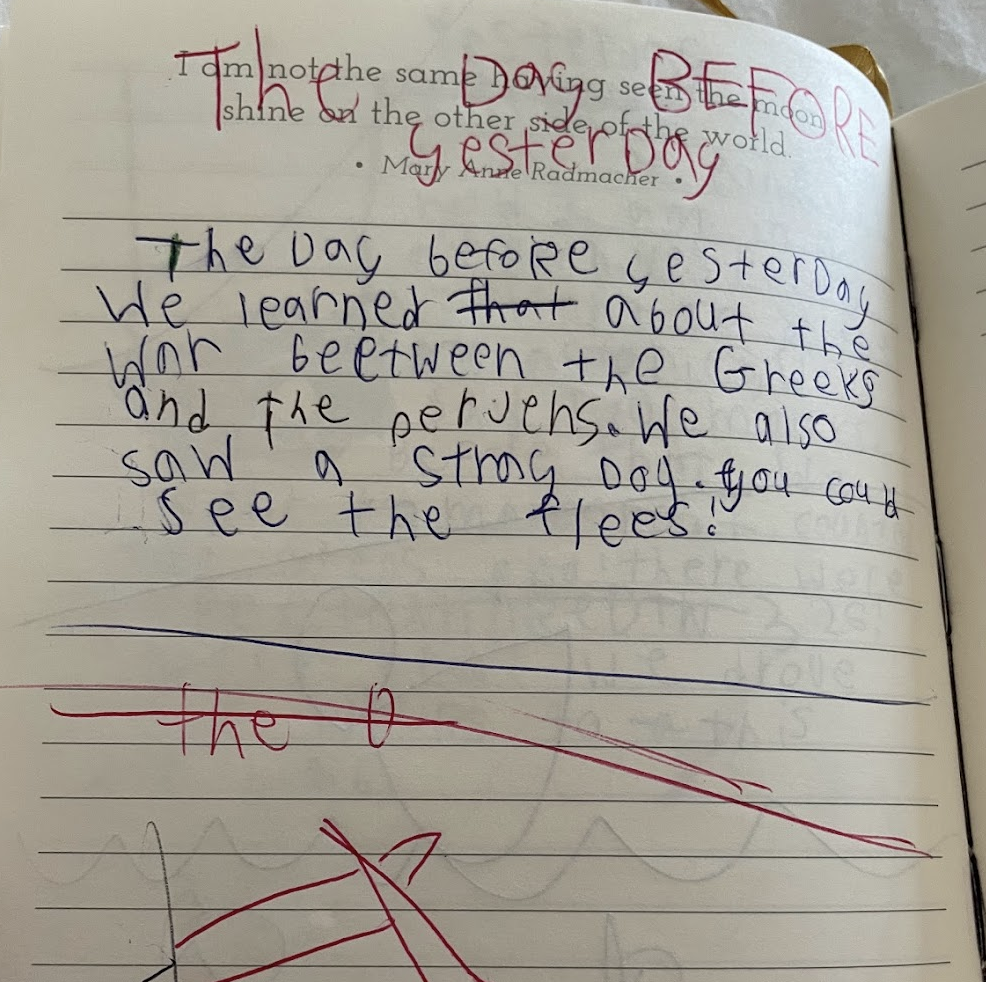 I am not the same having seen the moon
shine on the other side of the world.
• Mary Anne Radmacher •
The Day BEFORE
yesterDay
The Day befoRe yesterDay
We learned that about the
War beetween the Greeks
and the peruens. We also
saw a strag Dog. you could
see the flees!
the